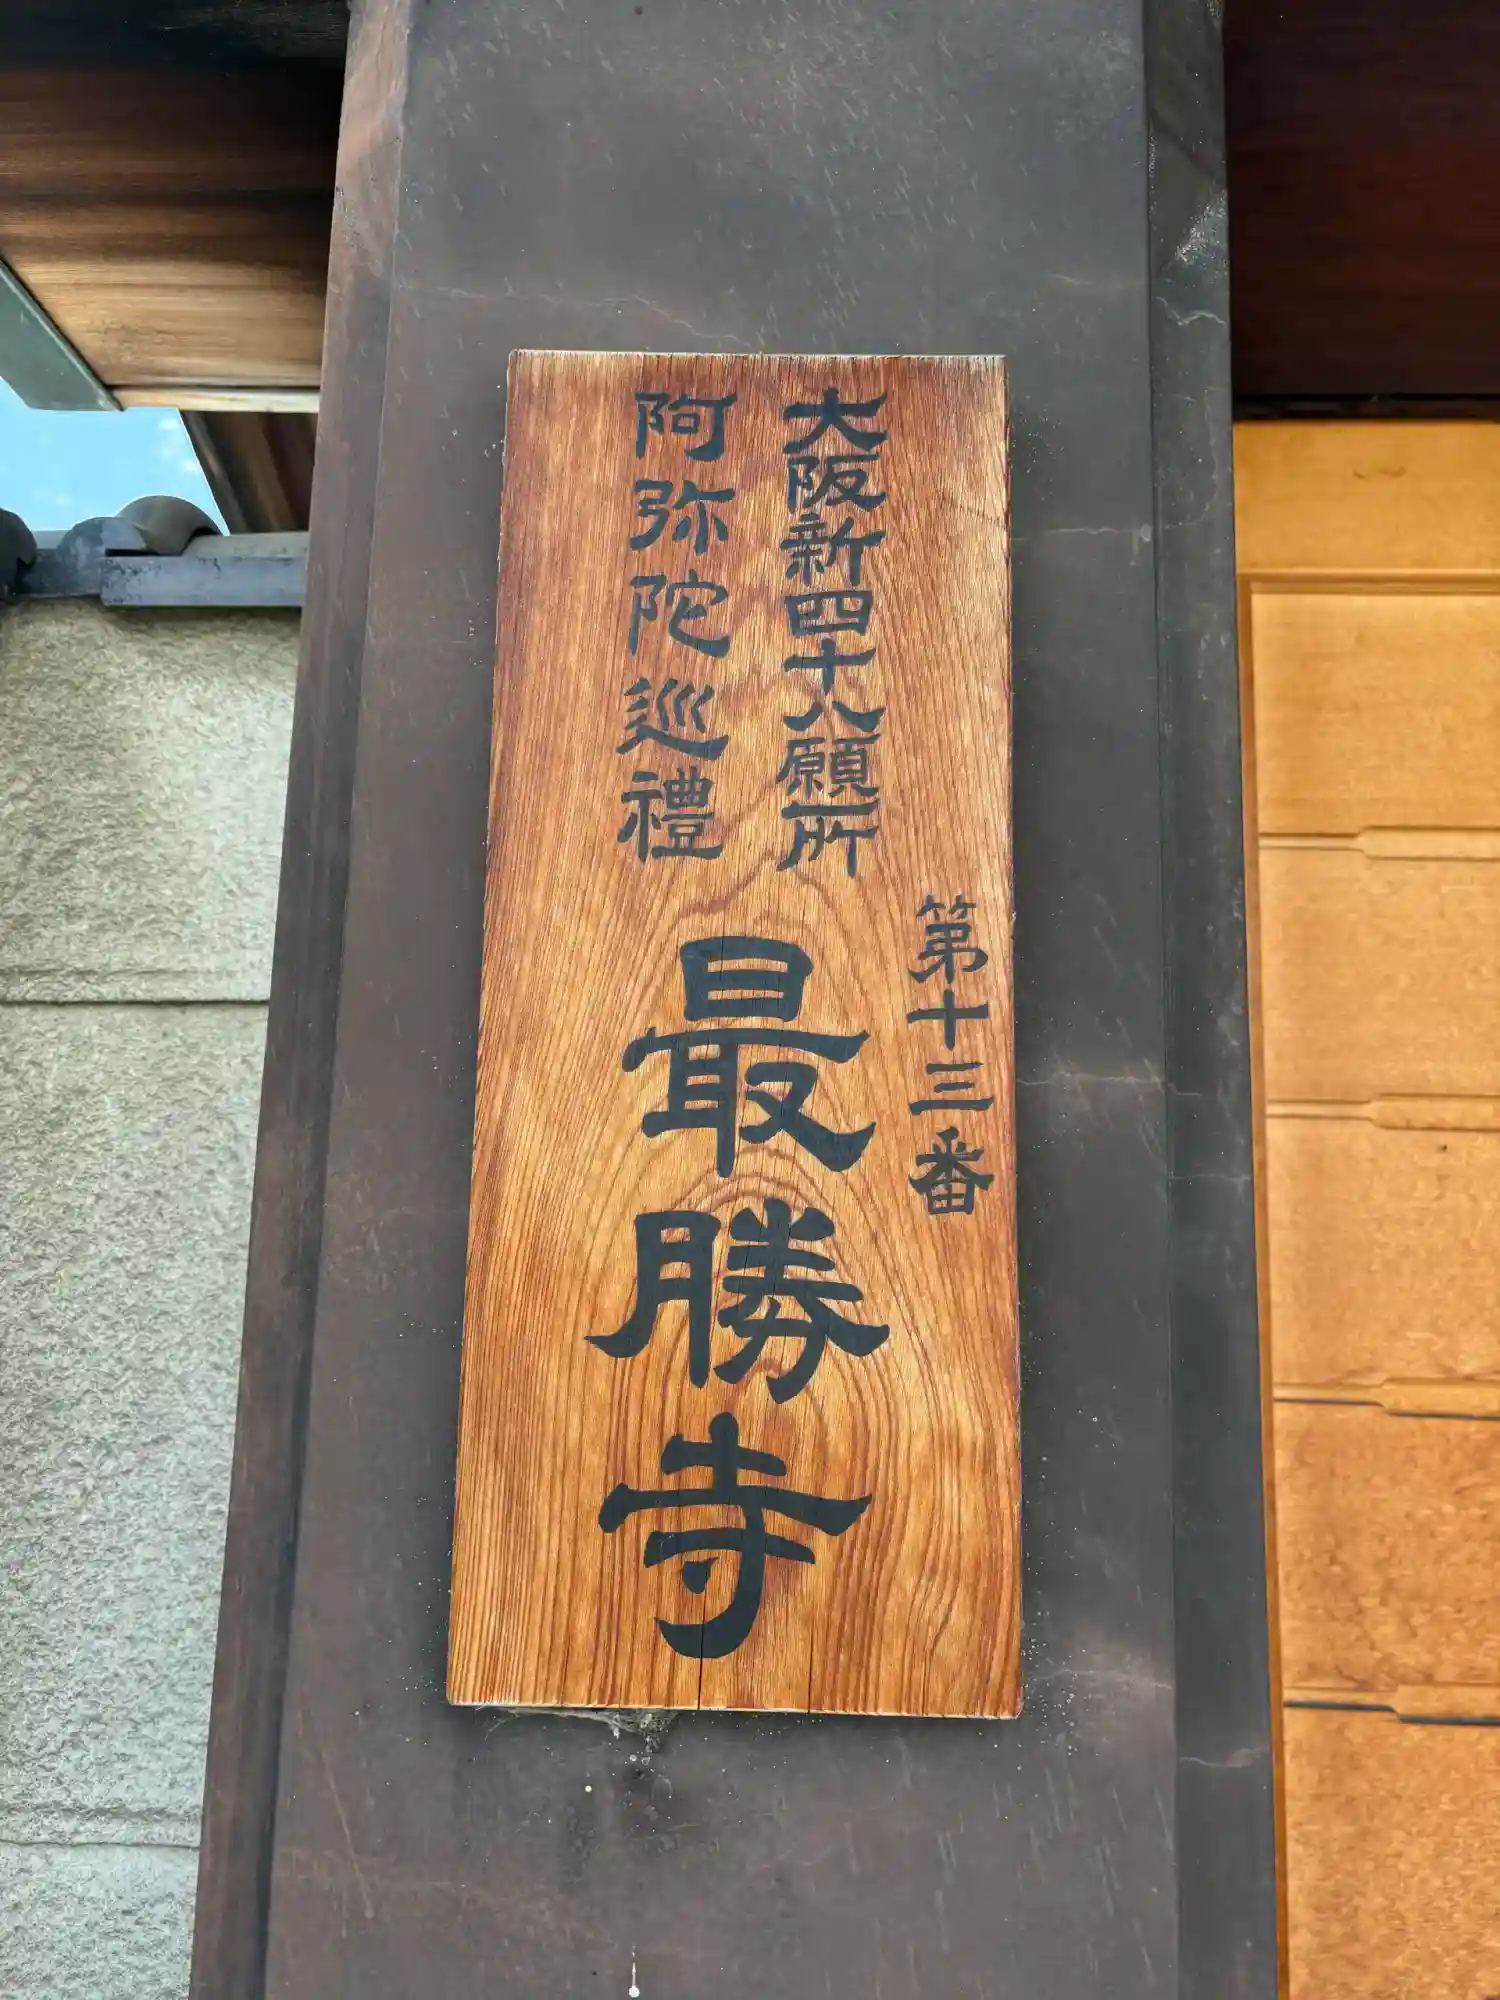 第十三番
大阪新四十八願所
阿弥陀巡禮
最勝寺